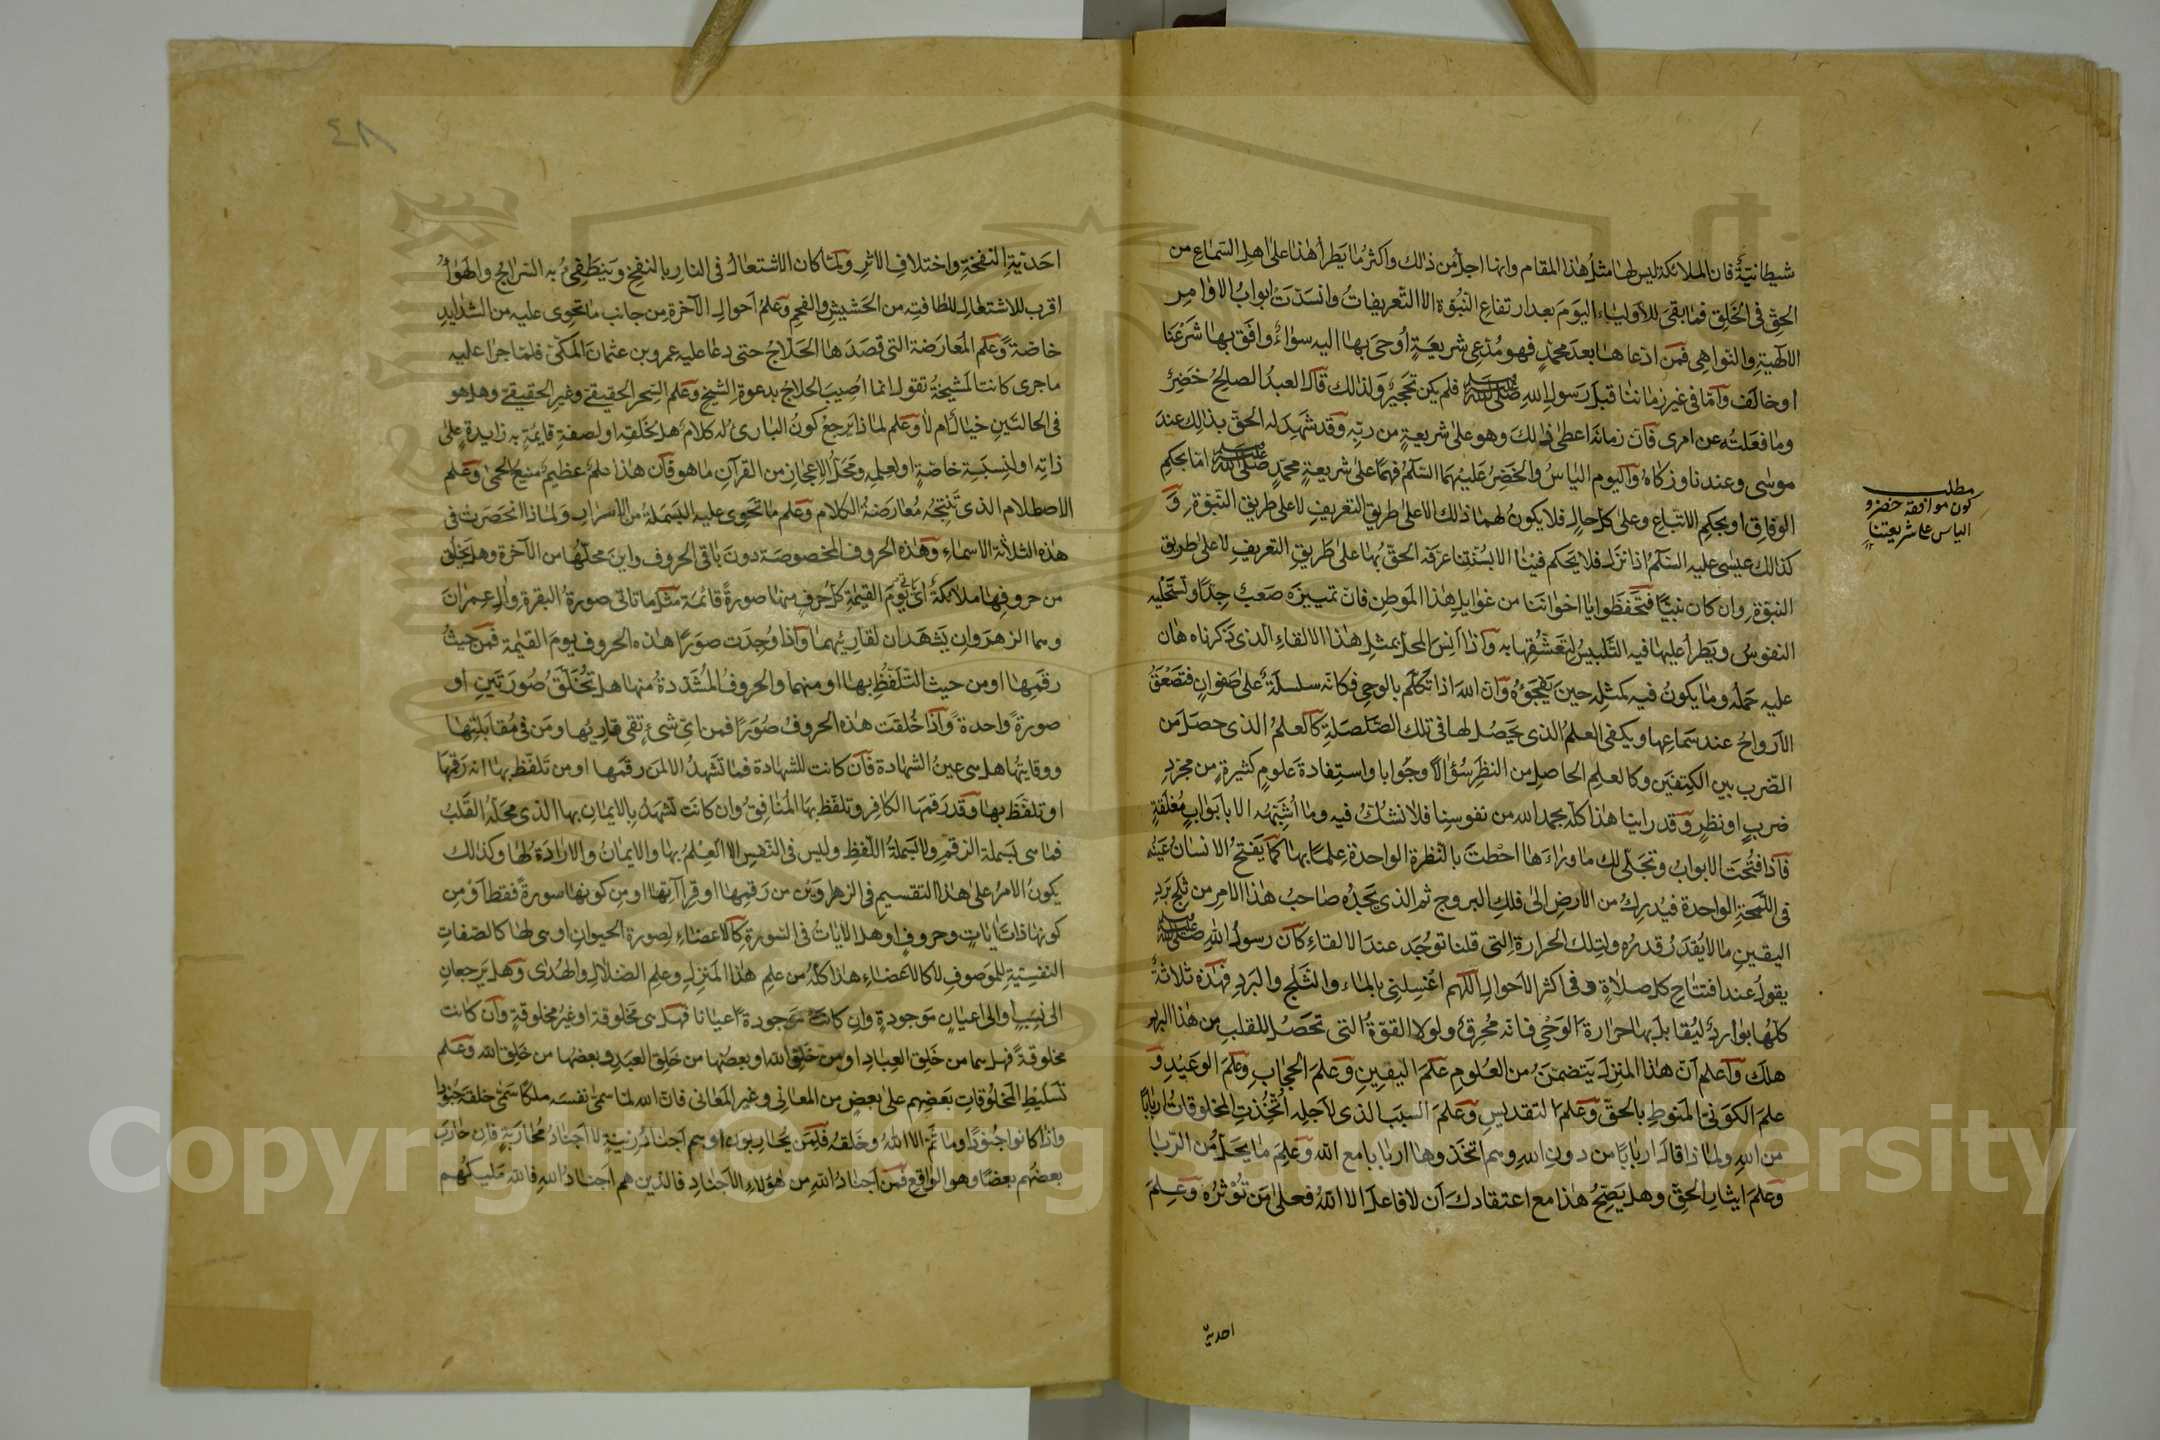 شيطانيّة فان الملائكة ليس لها مثل هذا المقام وانها اجل من ذلك واكثر ما يطرأ هذا على اهل السماع من
الحق في الخلق فما بقى للأولياء اليوم بعد ارتفاع النبوة الا التعريفات وانسدت ابواب الاوامر
الالهية والنواهي فمن ادعاها بعد محمد فهو مدعى شريعة أوحى بها اليه سواء وافق بها شرعنا
او خالف وامّا في غير زماننا قبل رسول الله صلى الله عليه وسلم فلم يكن تحجير ولذلك قال العبد الصالح خضر
وما فعلته عن امرى فان زمانه اعطى ذلك وهو على شريعة من ربه وقد شهد له الحق بذلك عند
موسى وعندنا وزكاه واليوم الياس والخضر عليهما السلم فهما على شريعة محمد صلى الله عليه وسلم اما بحكم
الوفاق او بحكم الاتباع وعلى كل حال فلا يكون لهما ذلك الا على طريق التعريف لا على طريق النبوة و
كذلك عيسى عليه السلم اذا نزل فلا يحكم فينا الا بسنتنا عرفه الحق بها على طريق التعريف لا على طريق
النبوة وان كان نبيًا فتحفظوا يا اخواننا من غوايل هذا الموطن فان تمييزه صعب جدًا وتستحليه
النفوس ويطرأ عليها فيه التلبيس لتعشقها به واذا انس المحل بمثل هذا الالقاء الذى ذكرناه هان
عليه حمله وما يكون فيه كمثله حين يفجؤه وان الله اذا تكلم بالوحي فكانه سلسلة على صفوان فتصعق
الارواح عند سماعها ويكفى العلم الذى يحصل لها في تلك الصلصلة كالعلم الذى حصل من
الضرب بين الكتفين وكالعلم الحاصل من النظر سؤالا وجوابا واستفادة علوم كثيرة من مجرد
ضرب او نظر وقد راينا هذا كله بحمد الله من نفوسنا فلا نشك فيه وما اشبّهه الا بابواب مغلقة
فاذا فتحت الابواب وتجلى لك ما وراءها احطت بالنظرة الواحدة علما بها كما يفتح الانسان عينه
في اللمحة الواحدة فيدرك من الارض الى فلك البروج ثم الذى يجده صاحب هذا الامر من ثلج برد
اليقين ما لا يقدر قدره ولتلك الحرارة التي قلنا توجد عند الالقاء كان رسول الله صلى الله عليه وسلم
يقول عند افتتاح كل صلاة وفى اكثر الاحوال اللهم اغسلنى بالماء والثلج والبرد فهذه ثلاثة
كلها بوارد ليقابل بها حرارة الوحي فانه محرق ولولا القوة التي تحصل للقلب من هذا البرد
هلك واعلم ان هذا المنزل يتضمن من العلوم علم اليقين وعلم الحجاب وعلم الوعيد و
علم الكونى المنوط بالحق وعلم التقديس وعلم السبب الذى لاجله اتخذت المخلوقات اربابًا
من الله ولماذا قال اربابا من دون الله وهم اتخذوها اربابا مع الله وعلم ما يحل من الربا
وعلم ايثار الحق وهل يصح هذا مع اعتقادك ان لا فاعل الا الله فعلى من تؤثره وعلم
احدية
مطلب
كون موافقة خضر و
الياس على شريعتنا
٤٨
احدية النفخة واختلاف الاثر ولما كان الاشتعال في النار بالنفخ وينطفئ به السراج والهواء
اقرب للاشتعال للطافته من الحشيش والفحم وعلم احوال الآخرة من جانب ما تحوى عليه من الشدايد
خاصة وعلم المعارضة التي قصدها الحلاج حتى دعا عليه عمرو بن عثمان المكى فلما جرا عليه
ما جرى كانت المشيخة تقول انما اصيب الحلاج بدعوة الشيخ وعلم السحر الحقيقى وغير الحقيقى وهل هو
في الحالتين خيال ام لا وعلم لماذا يرجع كون البارئ له كلام هل لخلقه او لصفة قايمة به زايدة على
ذاته او لنسبة خاصة او لعلمه ومحل الاعجاز من القرآن ما هو فان هذا علم عظيم منيع الحمى وعلم
الاصطلام الذى تنتجه معارضة الكلام وعلم ما تحوى عليه البسملة من الاسرار ولماذا انحصرت في
هذه الثلاثة الاسماء وهذه الحروف المخصوصة دون باقى الحروف واين محلها من الآخرة وهل يخلق
من حروفها ملائكة اى يأتى يوم القيمة كل حرف منها صورة قائمة مثل ما تاتى صورة البقرة وال عمران
وهما الزهروان يشهدان لقاريهما واذا وجدت صورًا هذه الحروف يوم القيمة فمن حيث
رقمها او من حيث التلفظ بها او منهما والحروف المشددة منها هل تخلق صورتين او
صورة واحدة واذا خلقت هذه الحروف صورا فمن اى شئ تقى قاريها ومن في مقابلتها
ووقايتها هل هى عين الشهادة فان كانت للشهادة فما تشهد الا لمن رقمها او من تلفظ بها انه رقمها
او تلفظ بها وقد رقمها الكافر وتلفظ بها المنافق وان كانت تشهد بالايمان بها الذى محله القلب
فما هى بسملة الرقم ولا بسملة اللفظ وليس في النفس الا العلم بها والايمان والارادة لها وكذلك
يكون الامر على هذا التقسيم في الزهراوين من رقمها او قرآتها او من كونها صورة فقط او من
كونها ذات آيات وحروف او هل الايات في السورة كالاعضاء لصورة الحيوان او هى لها كالصفات
النفسية للموصوف لا كالاعضاء هذا كله من علم هذا المنزل وعلم الضلال والهدى وهل يرجعان
الى نسب والى اعيان موجودة وان كانت موجودة اعيانا فهل هى مخلوقة او غير مخلوقة وان كانت
مخلوقة فهل هما من خلق العباد او من خلق الله او بعضها من خلق العبد وبعضها من خلق الله وعلم
تسليط المخلوقات بعضهم على بعض من المعاني وغير المعانى فان الله لما سمى نفسه ملكا سمى خلقه جنودا
واذا كانوا جنودًا وما ثم الا الله وخلقه فلمن يحاربون او هم اجناد زينة لا اجناد محاربة فان حارب
بعضهم بعضا وهو الواقع فمن اجناد الله من هؤلاء الاجناد فالذين هم اجناد الله فالله مليكهم
Copyright © King Saud University